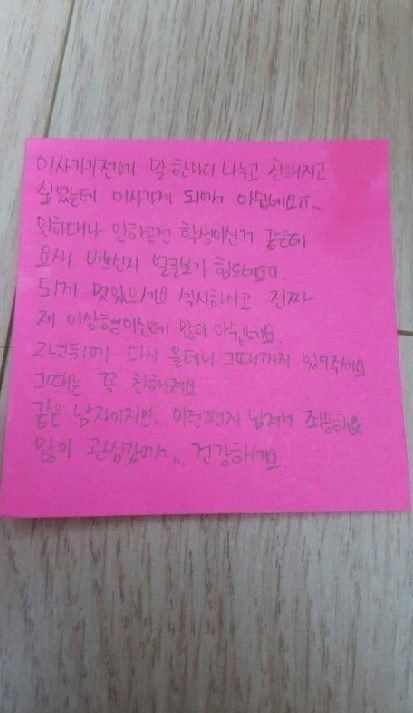 이사가기전에 말 한마디 나누고 친해지고
싶었는데 이사가게 되어서 아쉽네요ㅠ...
인하대나 인하공전 학생이신거 같은데
요새 바쁘신지 얼굴보기 힘드네요ㅠ.
되게 멋있으세요 섹시하시고 진짜
제 이상형이신데 많이 아쉽네요.
2년뒤에 다시 올터니 그때까지 있어주세요
그때는 꼭 친해져요
같은 남자이지만. 이런편지 남겨서 죄송해요
많이 관심갔어서... 건강하세요.